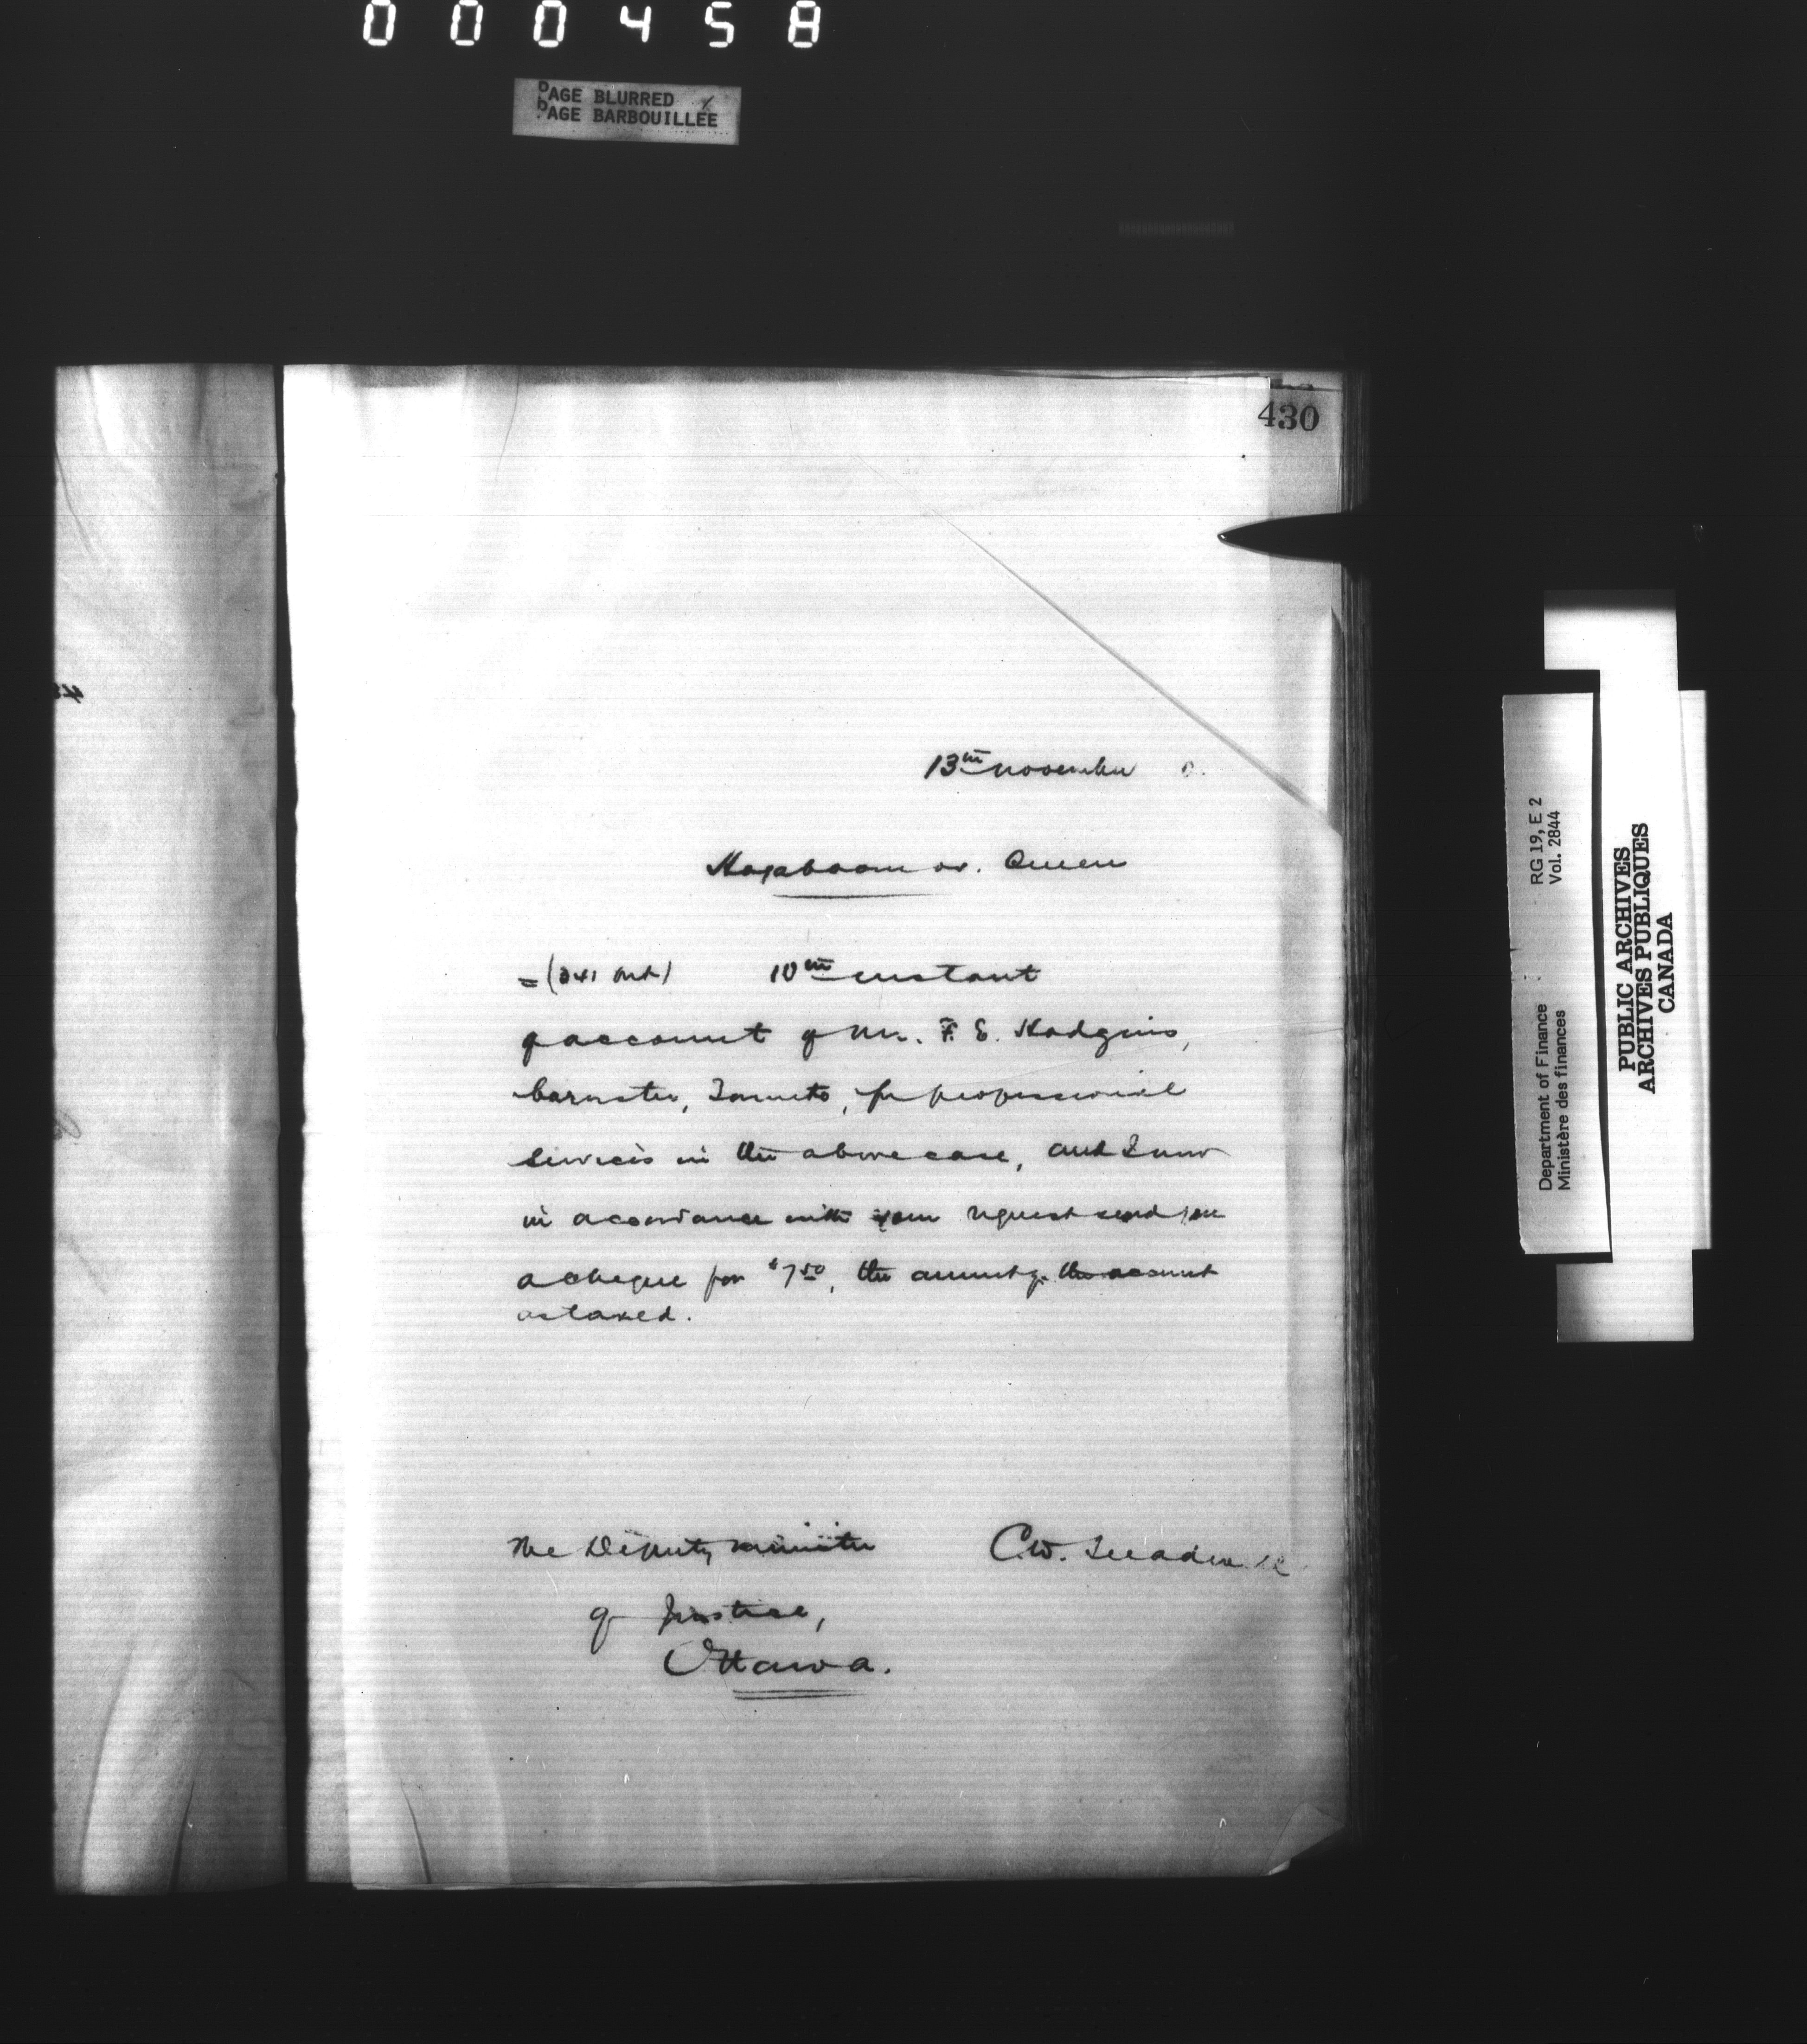 000458
PAGE BLURRED
PAGE BARBOUILLÉE
430
13th november
Hogaboom vs. Queen
10th instant
of account of Mr. F. E. Hodgins,
barrister, Toronto, for professional
services in the above case, and I now
in accordance with your request send you
a cheque for $7.50, the amount of the account
as taxed.
The Deputy Minister
of Justice,
Ottawa.
C.W. Treadwell
Department of Finance RG 19, E 2
Ministère des finances Vol. 2844
PUBLIC ARCHIVES
ARCHIVES PUBLIQUES
CANADA